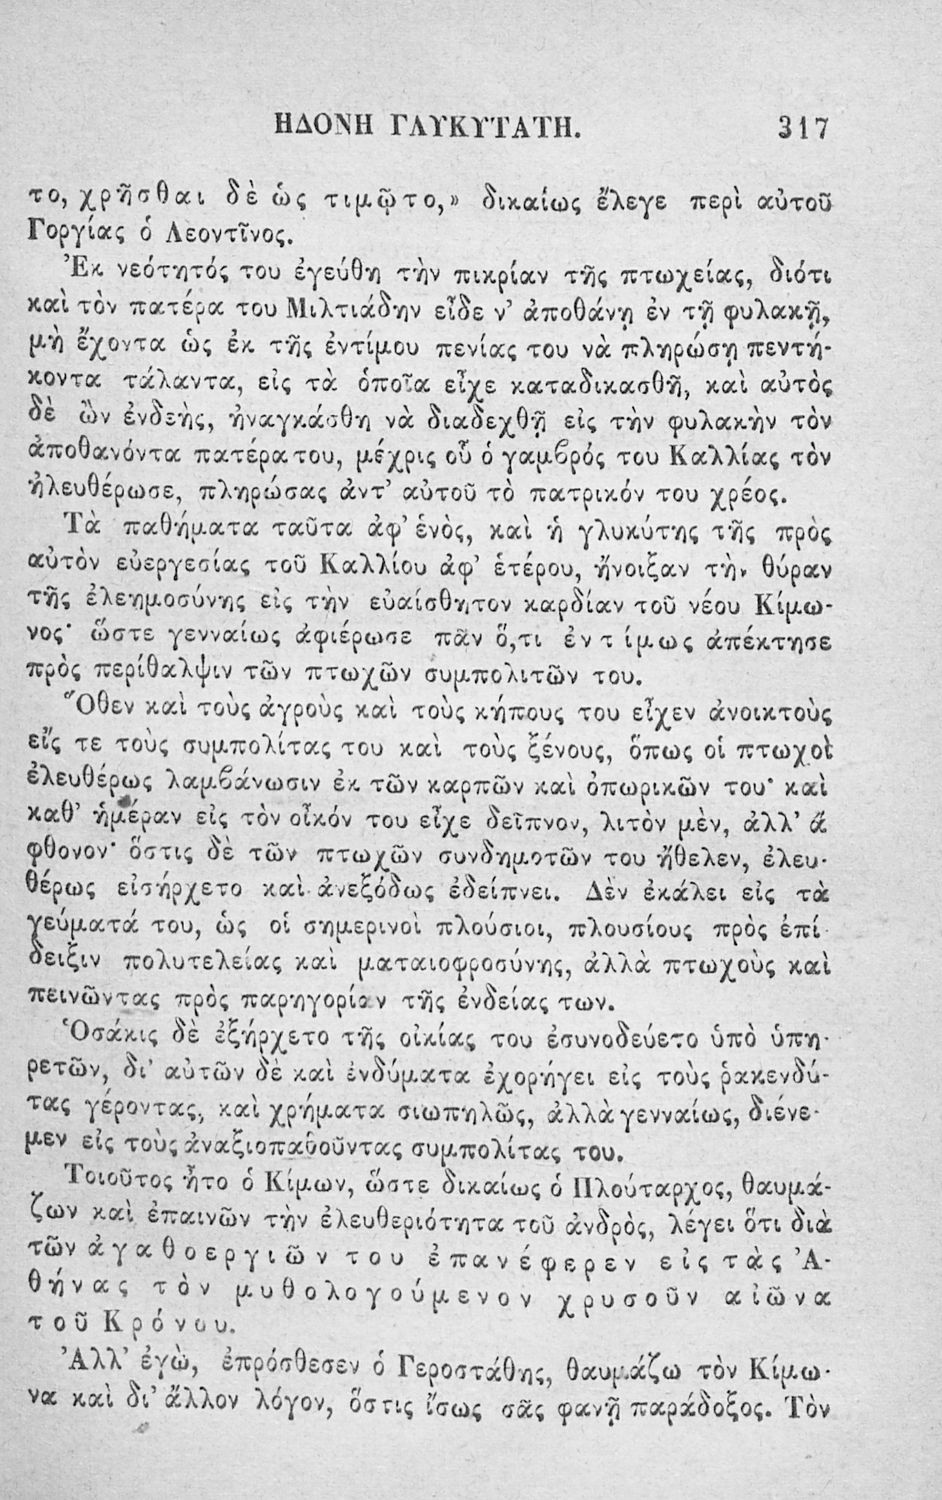 ΗΔΟΝΗ ΓΛΥΚΥΤΑΤΗ. 317
το, χρῆσθαι δὲ ὡς τιμῷτο,» δικαίως ἔλεγε περὶ αὐτοῦ
Γοργίας ὁ Λεοντῖνος.
Ἐκ νεότητός του ἐγεύθη τὴν πικρίαν τῆς πτωχείας, διότι
καὶ τὸν πατέρα του Μιλτιάδην εἶδε ν’ ἀποθάνῃ ἐν τῇ φυλακῇ,
μὴ ἔχοντα ὡς ἐκ τῆς ἐντίμου πενίας του νὰ πληρώσῃ πεντή-
κοντα τάλαντα, εἰς τὰ ὁποῖα εἶχε καταδικασθῆ, καὶ αὐτὸς
δὲ ὢν ἐνδεὴς, ἠναγκάσθη νὰ διαδεχθῇ εἰς τὴν φυλακὴν τὸν
ἀποθανόντα πατέρα του, μέχρις οὗ ὁ γαμβρός του Καλλίας τὸν
ἠλευθέρωσε, πληρώσας ἀντ’ αὐτοῦ τὸ πατρικόν του χρέος.
Τὰ παθήματα ταῦτα ἀφ’ ἑνὸς, καὶ ἡ γλυκύτης τῆς πρὸς
αὐτὸν εὐεργεσίας τοῦ Καλλίου ἀφ’ ἑτέρου, ἤνοιξαν τὴν θύραν
τῆς ἐλεημοσύνης εἰς τὴν εὐαίσθητον καρδίαν τοῦ νέου Κίμω-
νος· ὥστε γενναίως ἀφιέρωσε πᾶν ὅ,τι ἐντίμως ἀπέκτησε
πρὸς περίθαλψιν τῶν πτωχῶν συμπολιτῶν του.
Ὅθεν καὶ τοὺς ἀγροὺς καὶ τοὺς κήπους του εἶχεν ἀνοικτοὺς
εἴς τε τοὺς συμπολίτας του καὶ τοὺς ξένους, ὅπως οἱ πτωχοὶ
ἐλευθέρως λαμβάνωσιν ἐκ τῶν καρπῶν καὶ ὀπωρικῶν του· καὶ
καθ’ ἡμέραν εἰς τὸν οἶκόν του εἶχε δεῖπνον, λιτὸν μὲν, ἀλλ’ ἄ
φθονον· ὅστις δὲ τῶν πτωχῶν συνδημοτῶν του ἤθελεν, ἐλευ-
θέρως εἰσήρχετο καὶ ἀνεξόδως ἐδείπνει. Δὲν ἐκάλει εἰς τὰ
γεύματά του, ὡς οἱ σημερινοὶ πλούσιοι, πλουσίους πρὸς ἐπί-
δειξιν πολυτελείας καὶ ματαιοφροσύνης, ἀλλὰ πτωχοὺς καὶ
πεινῶντας πρὸς παρηγορίαν τῆς ἐνδείας των.
Ὁσάκις δὲ ἐξήρχετο τῆς οἰκίας του ἐσυνοδεύετο ὑπὸ ὑπη-
ρετῶν, δι’ αὐτῶν δὲ καὶ ἐνδύματα ἐχορήγει εἰς τοὺς ῥακενδύ-
τας γέροντας, καὶ χρήματα σιωπηλῶς, ἀλλὰ γενναίως, διένε-
μεν εἰς τοὺς ἀναξιοπαθοῦντας συμπολίτας του.
Τοιοῦτος ἦτο ὁ Κίμων, ὥστε δικαίως ὁ Πλούταρχος, θαυμά-
ζων καὶ ἐπαινῶν τὴν ἐλευθεριότητα τοῦ ἀνδρὸς, λέγει ὅτι διὰ
τῶν ἀγαθοεργιῶν του ἐπανέφερεν εἰς τὰς Ἀ-
θήνας τὸν μυθολογούμενον χρυσοῦν αἰῶνα
τοῦ Κρόνου.
Ἀλλ’ ἐγὼ, ἐπρόσθεσεν ὁ Γεροστάθης, θαυμάζω τὸν Κίμω-
να καὶ δι’ ἄλλον λόγον, ὅστις ἴσως σᾶς φανῇ παράδοξος. Τὸν